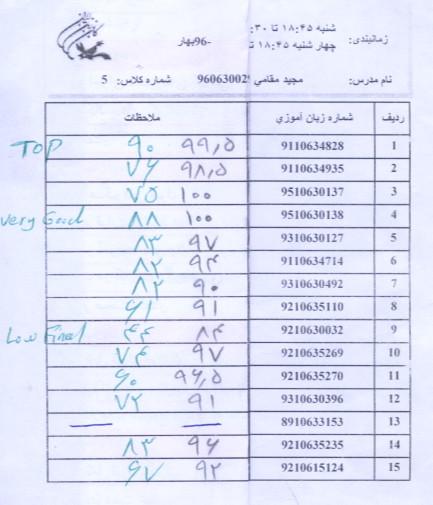 زمانبندی: شنبه ۱۸:۴۵ تا ۳۰: -96بهار
چهار شنبه ۱۸:۴۵ ت
نام مدرس: مجید مقامی 96063002 شماره کلاس: 5
ردیف شماره زبان آموزي ملاحظات
1 9110634828 ۹۹,۵ ۹۰ TOP
2 9110634935 ۹۸,۵ ۷۶
3 9510630137 ۱۰۰ ۷۵
4 9510630138 ۱۰۰ ۸۸ very Good
5 9310630127 ۹۷ ۸۳
6 9110634714 ۹۴ ۸۲
7 9310630492 ۹۰ ۸۲
8 9210635110 ۹۱ ۶۱
9 9210630032 ۸۴ ۴۴ Low Final
10 9210635269 ۹۷ ۷۴
11 9210635270 ۹۶,۵ ۶۰
12 9310630396 ۹۱ ۷۲
13 8910633153 — —
14 9210635235 ۹۶ ۸۳
15 9210615124 ۹۲ ۶۷